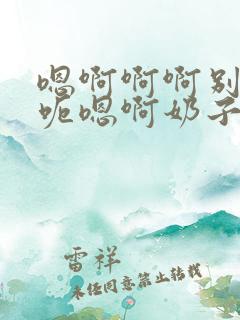 嗯啊啊啊别
呃嗯啊奶子
雷祥
未经同意禁止转载